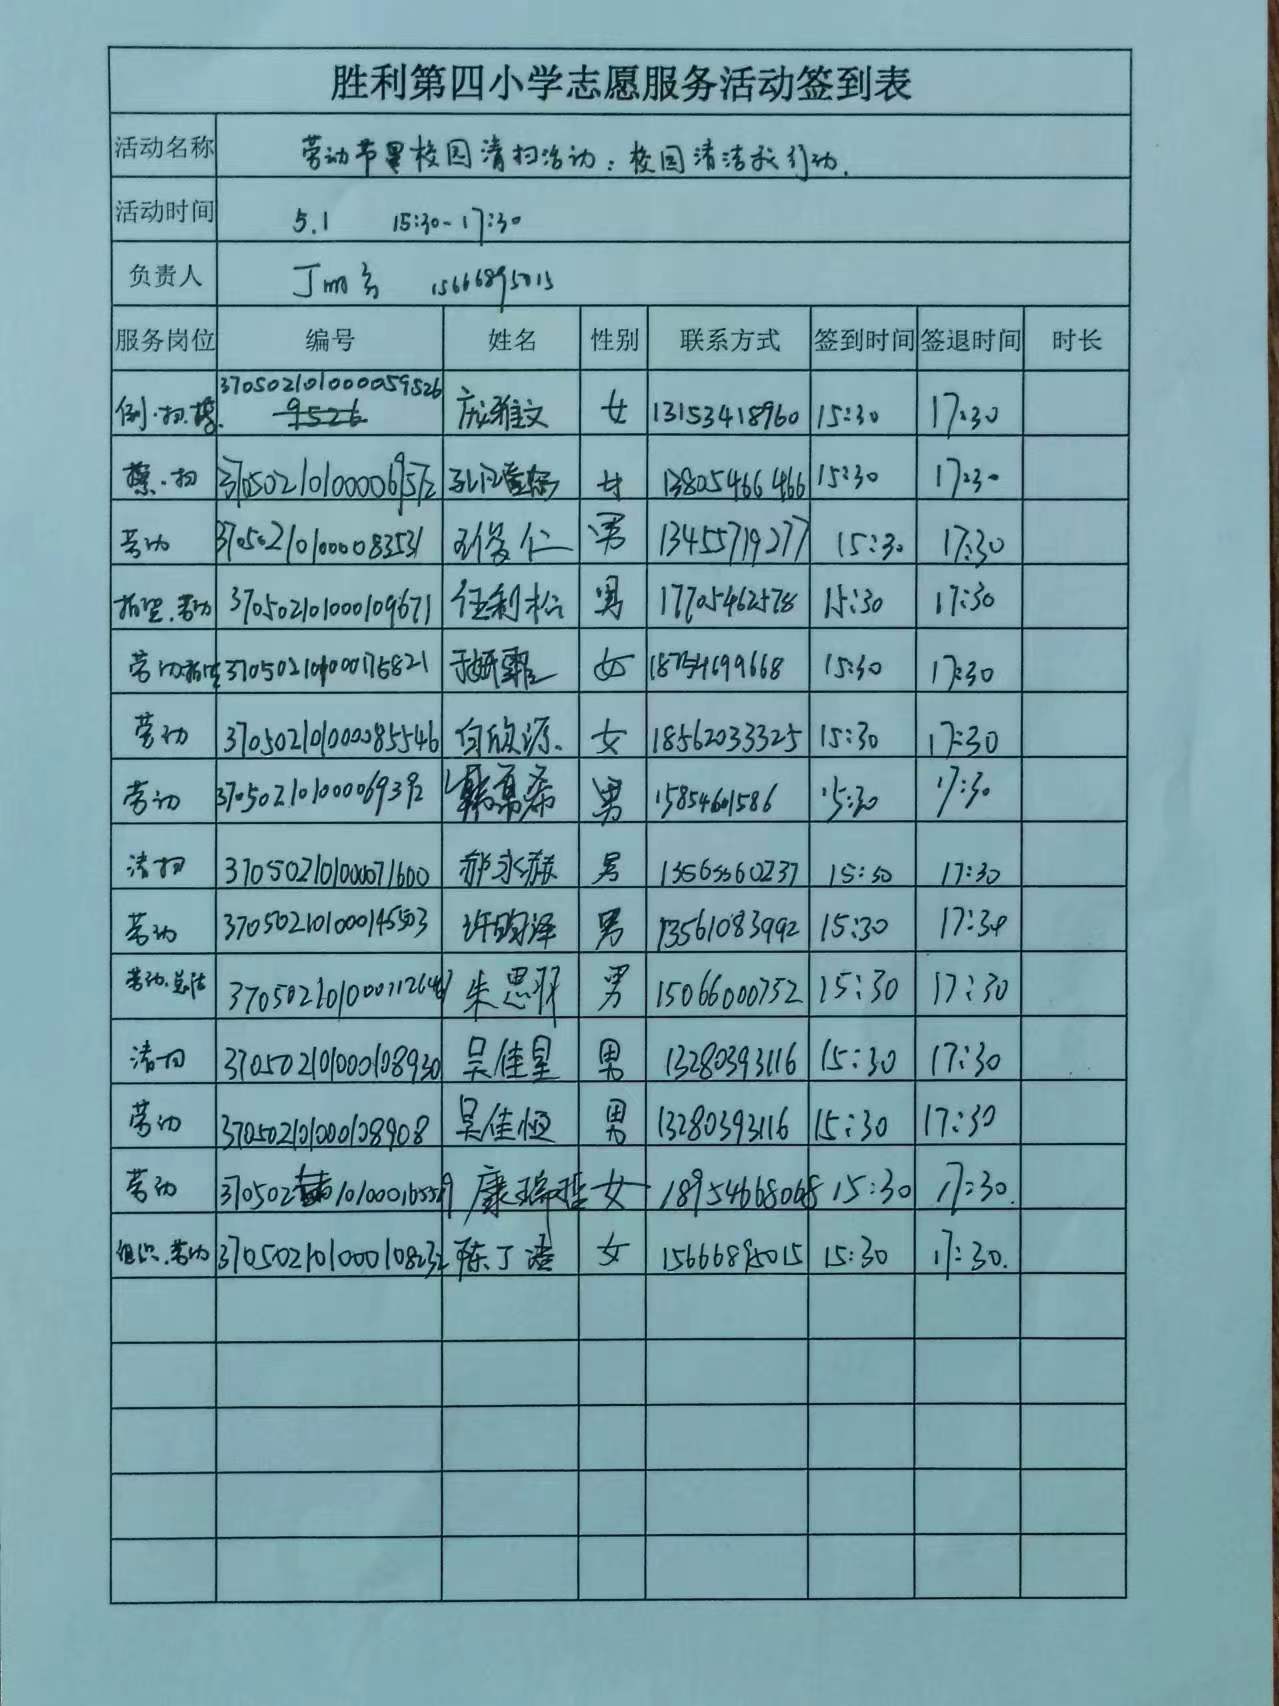 胜利第四小学志愿服务活动签到表
活动名称 劳动节里校园清扫活动：校园清洁我行动.
活动时间 5.1 15:30-17:30
负责人 丁 15666895015
服务岗位 编号 姓名 性别 联系方式 签到时间 签退时间 时长
扫 37050210100059526 9526 庞雅文 女 13153418960 15:30 17:30
擦·扫 女 13805466466 15:30 17:30
劳动 男 13455719277 15:30 17:30
劳动 370502101000109671 任利松 男 17705462578 15:30 17:30
劳动 女 18754699668 15:30 17:30
劳动 370502101000085546 白欣源. 女 18562033325 15:30 17:30
劳动 370502101000069392 男 15854601586 15:30 17:30
清扫 370502101000071600 男 15:30 17:30
劳动 370502101000145503 许昀泽 男 13561083992 15:30 17:30
劳动· 朱思羽 男 15066000752 15:30 17:30
清扫 370502101000108930 吴佳星 男 13280393116 15:30 17:30
劳动 370502101000108908 吴佳恒 男 13280393116 15:30 17:30
劳动 康瑞 女 18954668068 15:30 17:30.
组织.劳动 370502101000108232 陈丁 女 15666895015 15:30 17:30.